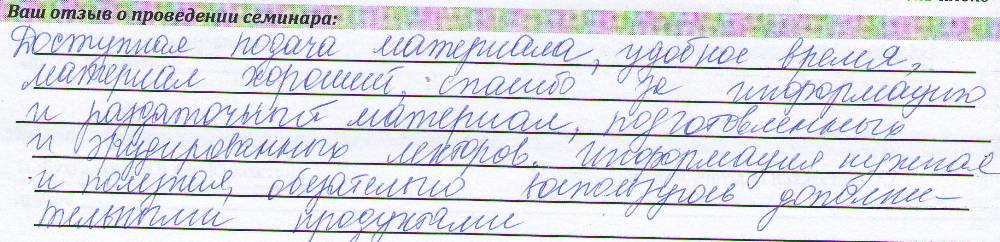 Ваш отзыв о проведении семинара:
Доступная подача материала, удобное время,
материал хороший, спасибо за информацию
и раздаточный материал, подготовленных
и эрудированных лекторов. Информация нужная
и полезная, обязательно воспользуюсь дополни-
тельными продуктами